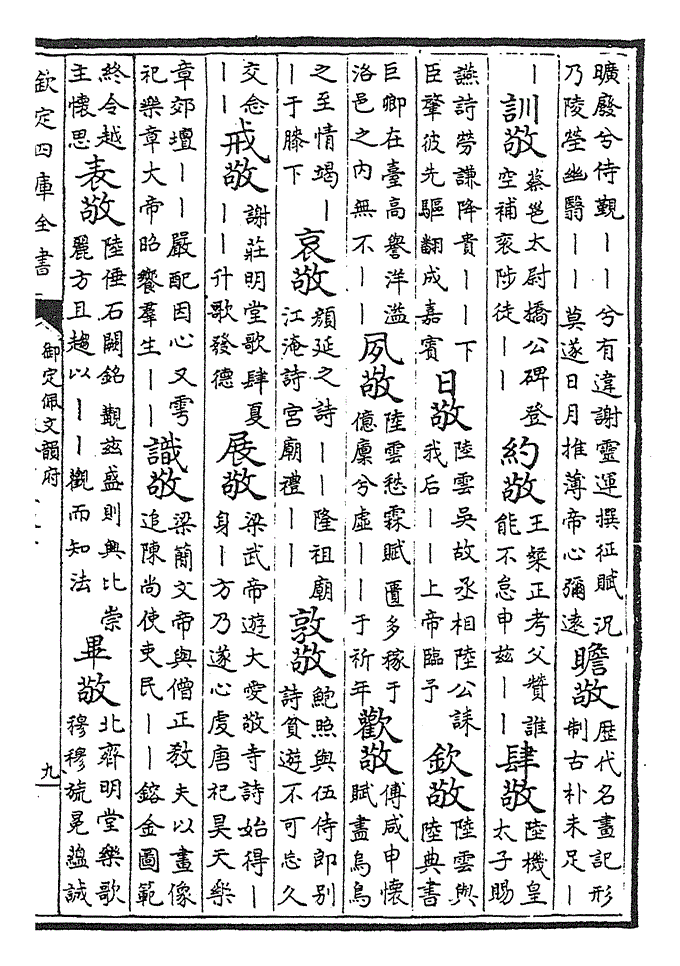 曠廢兮侍覲｜｜兮有違謝靈運撰征賦況
乃陵塋幽翳｜｜莫遂日月推薄帝心彌遠
瞻敬
歴代名畫記形
制古朴未足｜
｜訓敬
蔡邕太尉橋公碑登
空補衮陟徒｜｜
約敬
王粲正考父贊誰
能不怠申兹｜｜
肆敬
陸機皇
太子賜
讌詩勞謙降貴｜｜下
臣肇彼先驅翻成嘉賓
日敬
陸雲吳故丞相陸公誄
我后｜｜上帝臨予
欽敬
陸雲與
陸典書
巨卿在臺高譽洋滥
洛邑之内無不｜｜
夙敬
陸雲愁霖賦匱多稼于
億廪兮虛｜｜于祈年
歡敬
傅咸申懷
賦盡烏鳥
之至情竭｜
｜于膝下
哀敬
顔延之詩｜｜隆祖廟
江淹詩宮廟禮｜｜
敦敬
鮑照與伍侍郎别
詩貧遊不可忘久
交念
｜｜
戒敬
謝莊明堂歌肆夏
｜｜升歌發德
展敬
梁武帝遊大愛敬寺詩始得｜
身｜方乃遂心虔唐祀昊天樂
章郊壇｜｜嚴配因心又雩
祀樂章大帝昭饗羣生｜｜
識敬
梁簡文帝與僧正教夫以畫像
追陳尚使吏民｜｜鎔金圖範
終令越
主懷思
表敬
陸倕石闕銘觀兹盛則興比崇
麗方且趨以｜｜觀而知法
畢敬
北齊明堂樂歌
穆穆旒冕藴誠
欽定四庫全書
御定佩文韻府
九